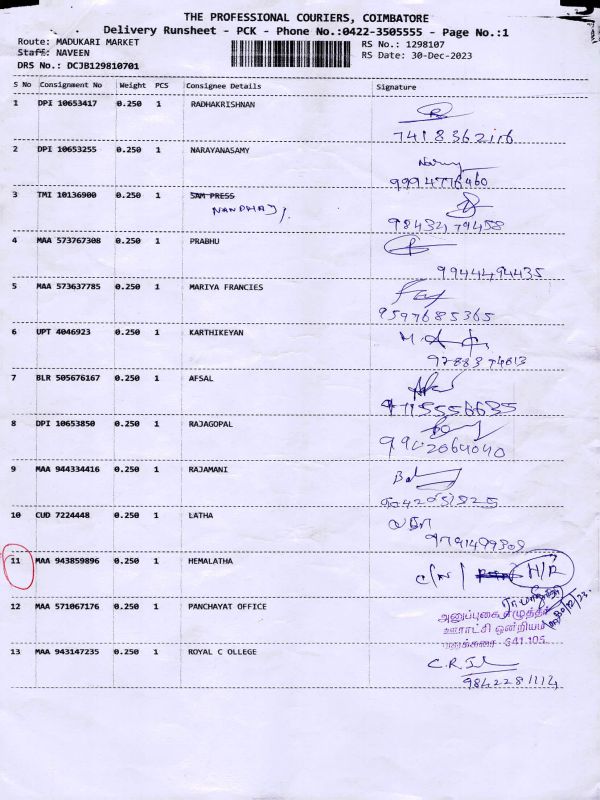 THE PROFESSIONAL COURIERS, COIMBATORE
Delivery Runsheet - PCK - Phone No.:0422-3505555 - Page No.:1
Route: MADUKARI MARKET
RS No.: 1298107
Staff: NAVEEN
RS Date: 30-Dec-2023
DRS No.: DCJB129810701
S No Consignment No Weight PCS Consignee Details Signature
1 DPI 10653417 0.250 1 RADHAKRISHNAN
2 DPI 10653255 0.250 1 NARAYANASAMY
9994776460
3 TMI 10136900 0.250 1 SAM PRESS
4 MAA 573767308 0.250 1 PRABHU
9944494435
5 MAA 573637785 0.250 1 MARIYA FRANCIES
9597685365
6 UPT 4046923 0.250 1 KARTHIKEYAN
7 BLR 505676167 0.250 1 AFSAL
9715556635
8 DPI 10653850 0.250 1 RAJAGOPAL
9902064040
9 MAA 944334416 0.250 1 RAJAMANI
10 CUD 7224448 0.250 1 LATHA
லதா
9791499309
11 MAA 943859896 0.250 1 HEMALATHA
12 MAA 571067176 0.250 1 PANCHAYAT OFFICE
ஊராட்சி ஒன்றியம்
641 105
13 MAA 943147235 0.250 1 ROYAL C OLLEGE
9842281114